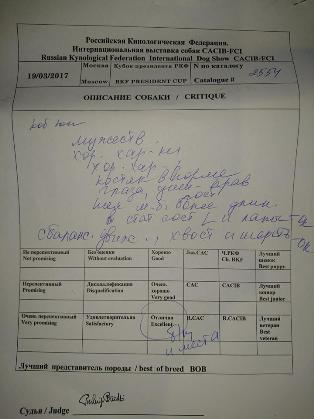 Российская Кинологическая Федерация.
Интернациональная выставка собак CACIB-FCI
Russian Kynological Federation International Dog Show CACIB-FCI
19/03/2017
Москва Кубок президента РКФ N по каталогу
Moscow RKF PRESIDENT CUP Catalogue #
ОПИСАНИЕ СОБАКИ / CRITIQUE
мужеств.
хор. хар-ки
хор. хар.
костяк в норме
глаза,
шея м.б. более длин.
в стат сост L и лапы - ок
сбаланс. движ., хвост и шерсть - ок
Не перспективный Без оценки Хорошо Юн.САС Ч.РКФ Лучший щенок
Not promising Without evaluation Good Ch. RKF Best puppy
Перспективный Дисквалификация Очень хорошо САС CACIB Лучший юниор
Promising Disqualification Very good Best junior
Очень перспективный Удовлетворительно Отлично R.CAC R.CACIB Лучший ветеран
Very promising Satisfactory Excellent Best veteran
б/у
и места
Лучший представитель породы / best of breed BOB
Судья / Judge